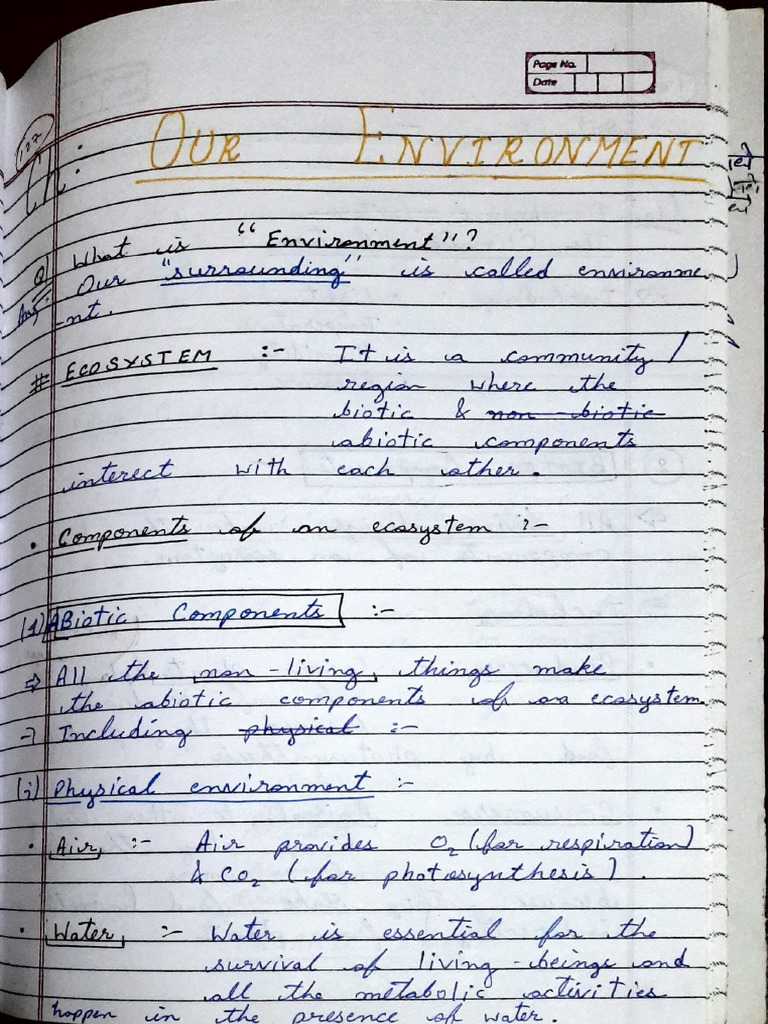 Page No.
Date
127
Ch:
OUR ENVIRONMENT
Q) What is "Environment"?
Ans: Our "surrounding" is called environme
-nt.
# ECOSYSTEM :- It is a community /
region where the
biotic & non-biotic
abiotic components
interect with each other.
• Components of an ecosystem :-
(1) ABiotic Components :-
⇒ All the non-living, things make
the abiotic components of an ecosystem
→ Including physical :-
(i) Physical environment :-
• Air, :- Air provides O₂ (for respiration)
& CO₂ (for photosynthesis).
• Water, :- Water is essential for the
survival of living-beings and
all the metabolic activities
happen in the presence of water.